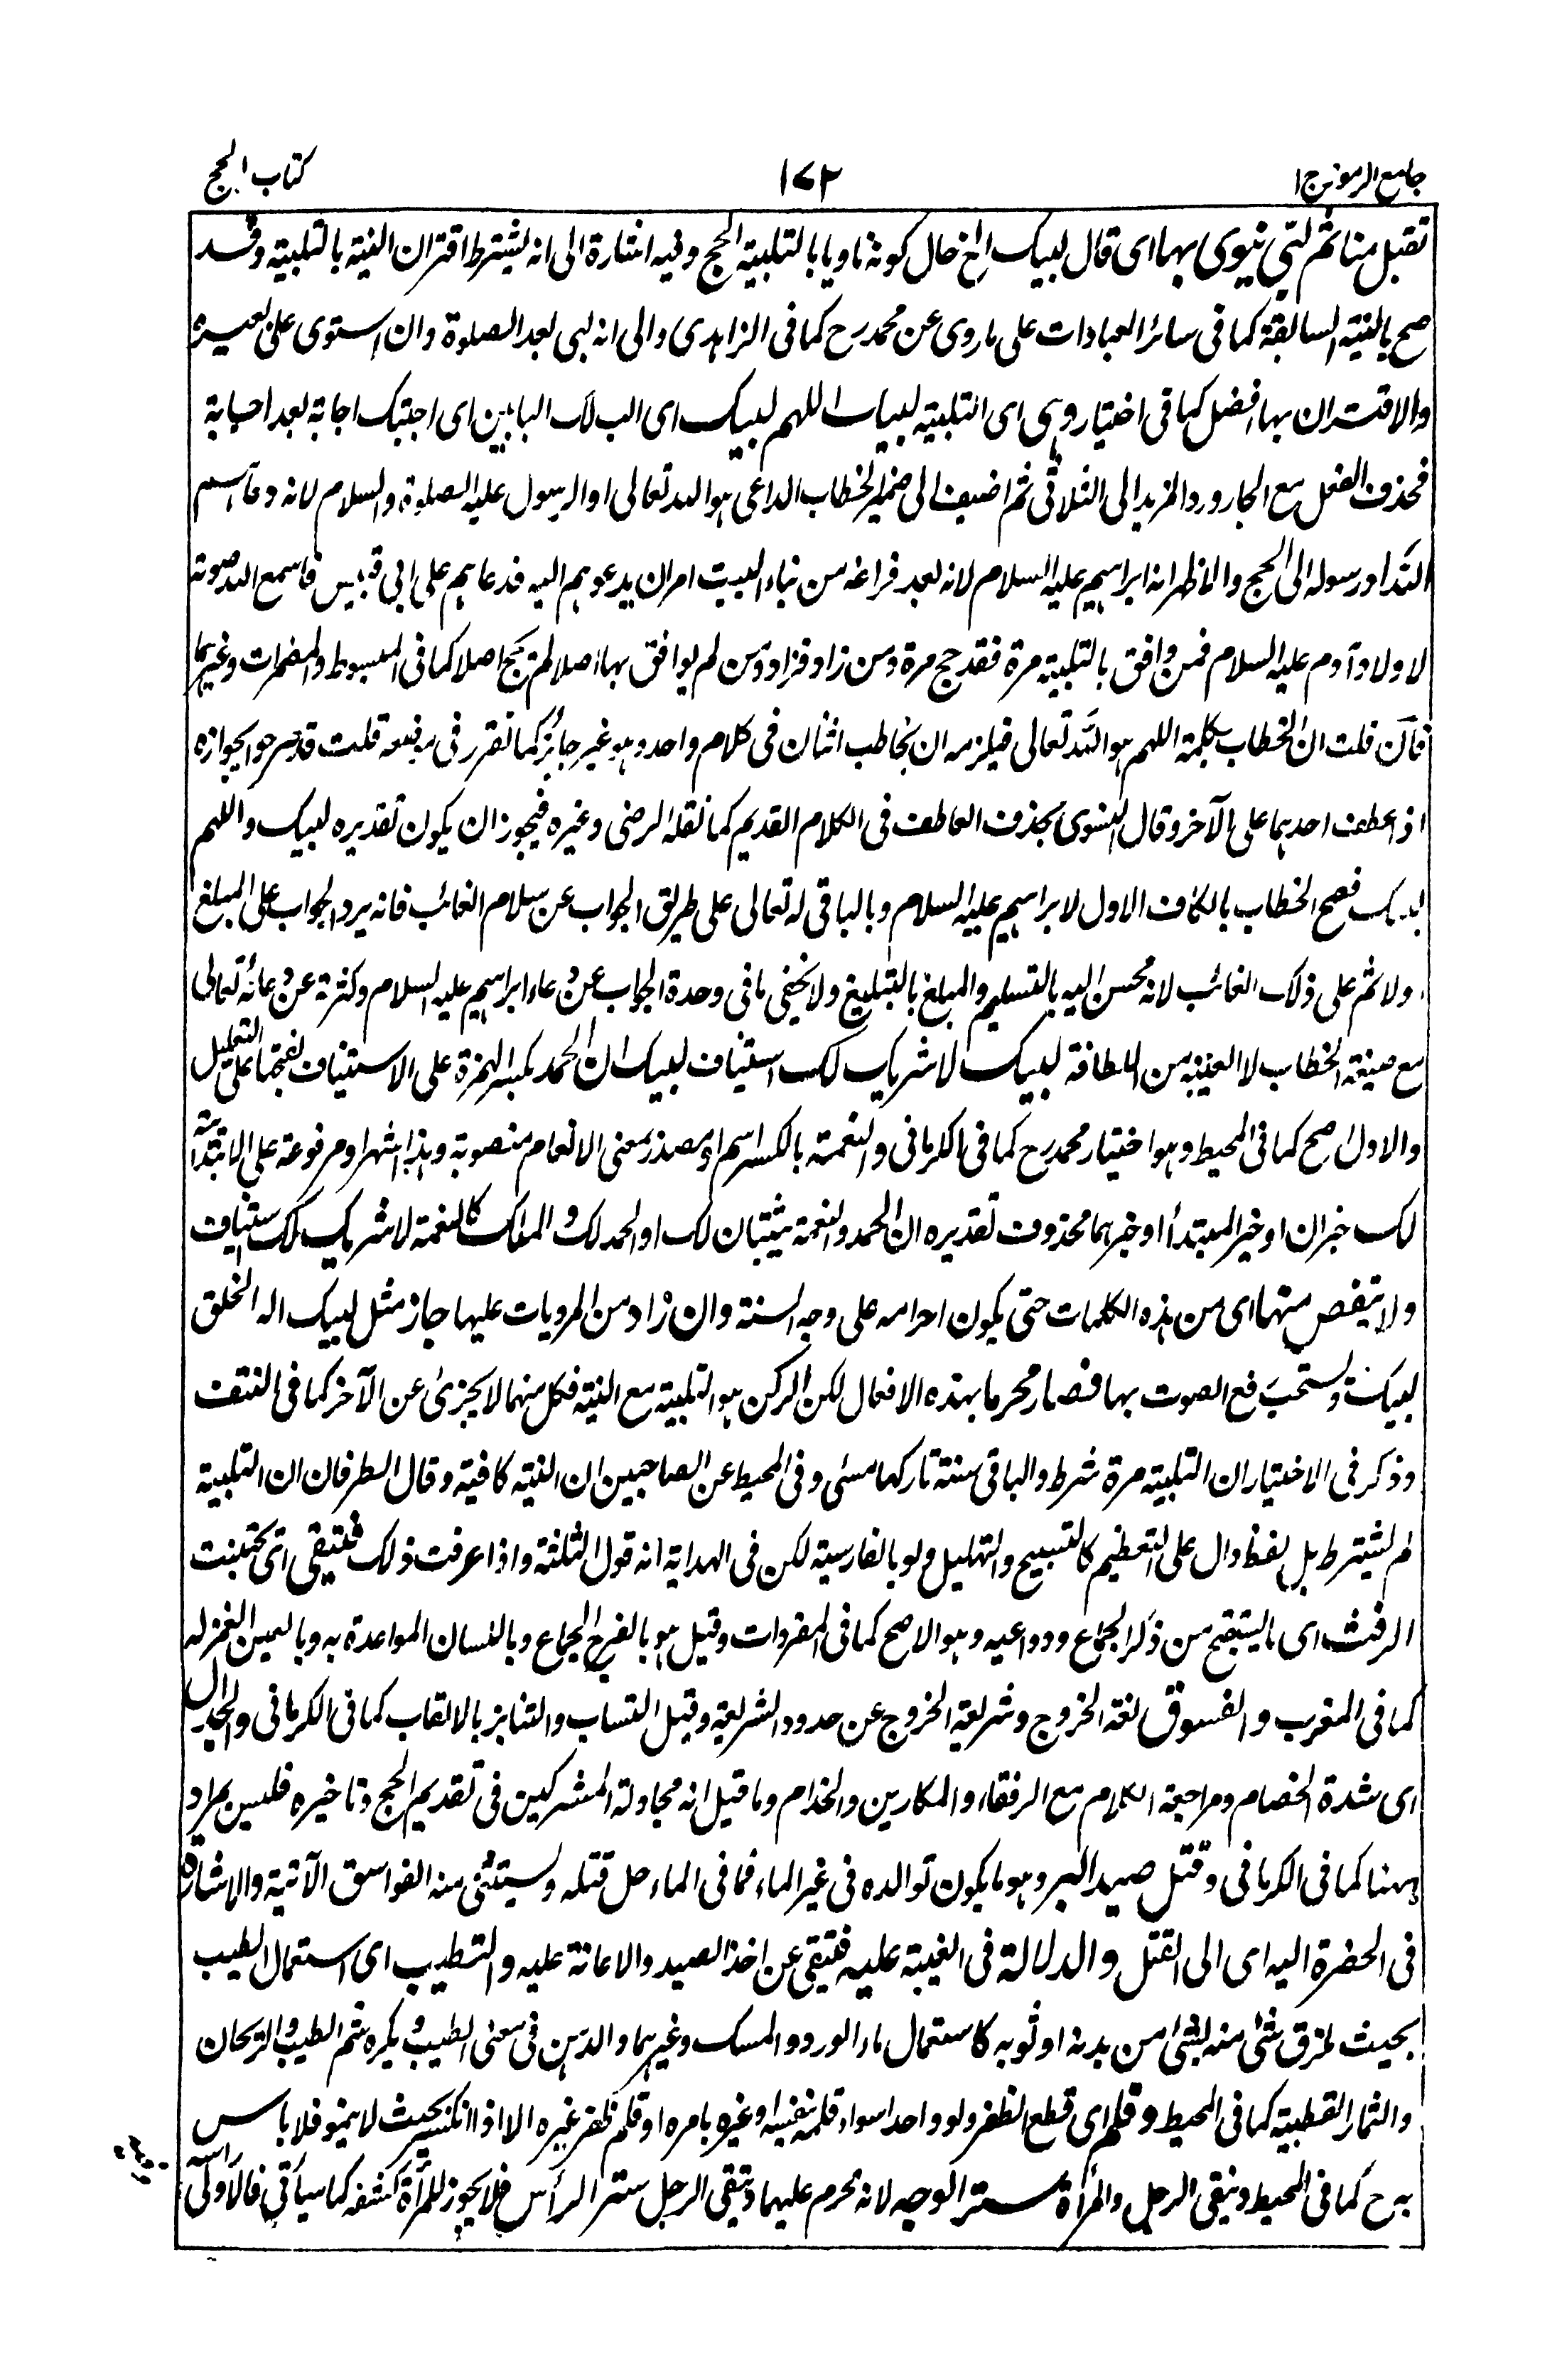 جامع الرموز ج ۱
۱۷۲
كتاب الحج
تقبل منا ثم لبى ينوى بها اى قال لبيك الخ حال كونه ناويا بالتلبية الحج وفيه اشارة الى انه يشترط اقتران النية بالتلبية وقد
صح بالنية السابقة كما فى سائر العبادات على ما روى عن محمد رح كما فى الزاهدى والى انه لبى بعد الصلوة وان استوى على بعيره
والاقتران بها افضل كما فى اختيار وهى اى التلبية لبيك اللهم لبيك اى الب لك البابين اى اجبتك اجابة بعد اجابة
فحذف الفعل مع الجار ورد المزيد الى الثلاثى ثم اضيف الى ضمير الخطاب الداعى هو الله تعالى او الرسول عليه الصلوة والسلام لانه دعا اسم
الله او رسوله الى الحج والاظهر انه ابراهيم عليه السلام لانه بعد فراغه من بناء البيت امر ان يدعوهم اليه فدعاهم على ابى قبيس فاسمع الله صوته
لاولاد آدم عليه السلام فمن وافق بالتلبية مرة فقد حج مرة ومن زاد فزاد ومن لم يوافق بها اصلا لم يحج اصلا كما فى المبسوط والمضمرات وغيرهما
فان قلت ان الخطاب بكلمة اللهم هو الله تعالى فيلزمه ان يخاطب اثنان فى كلام واحد وهو غير جائز كما تقرر فى موضعه قلت قد صرحوا بجوازه
اذا عطف احدهما على الآخر وقال الفسوى بحذف العاطف فى الكلام القديم كما نقله الرضى وغيره فيجوز ان يكون تقديره لبيك واللهم
لبيك فصح الخطاب بالكاف الاول لابراهيم عليه السلام وبالباقى له تعالى على طريق الجواب عن سلام الغائب فانه يرد الجواب على المبلغ
ولا ثم على ذلك الغائب لانه محسن اليه بالتسليم والمبلغ بالتبليغ ولا يخفى ما فى وحدة الجواب عن دعاء ابراهيم عليه السلام وكثرته عن دعائه تعالى
مع صيغة الخطاب لا الغيبة من اللطافة لبيك لا شريك لك استيناف لبيك ان الحمد بكسر الهمزة على الاستيناف بفتحها على التعليل
والاول اصح كما فى المحيط وهو اختيار محمد رح كما فى الكرمانى والنعمة بالكسر اسم او مصدر بمعنى الانعام منصوبة وهذا اشهر او مرفوعة على الابتدائية
لك خبر ان او خبر المبتدأ او خبرهما محذوف تقديره ان الحمد والنعمة يثبتان لك او الحمد لك والملك كالنعمة لا شريك لك استيناف
ولا ينقص منها اى من هذه الكلمات حتى يكون احرامه على وجه السنة وان زاد من المرويات عليها جاز مثل لبيك اله الخلق
لبيك ويستحب رفع الصوت بها فصار محرما بهذه الافعال لكن الركن هو التلبية مع النية فكل منهما لا يجزئ عن الآخر كما فى النتف
وذكر فى الاختيار ان التلبية مرة شرط والباقى سنة تاركها مسئ وفى المحيط عن الصاحبين ان النية كافية وقال الطرفان ان التلبية
لم يشترط بل لفظ دال على التعظيم كالتسبيح والتهليل ولو بالفارسية لكن فى الهداية انه قول الثلثة واذا عرفت ذلك فيتقى اى يجتنب
الرفث اى ما يستقبح من ذكر الجماع ودواعيه وهو الاصح كما فى المفردات وقيل هو بالفرج الجماع وباللسان المواعدة به وبالعين الغمز له
كما فى المغرب والفسوق لغة الخروج وشريعة الخروج عن حدود الشريعة وقيل التساب والتنابز بالالقاب كما فى الكرمانى والجدال
اى شدة الخصام ومراجعة الكلام مع الرفقاء والمكارين والخدام وما قيل انه مجاولة المشركين فى تقديم الحج وتاخيره فليس بمراد
ههنا كما فى الكرمانى وقتل صيد البر وهو ما يكون توالده فى غير الماء فما فى الماء حل قتله ويستثنى منه الفواسق الآتية والاشارة
فى الحضرة اليه اى الى القتل والدلالة فى الغيبة عليه فيتقى عن اخذ الصيد والاعانة عليه والتطيب اى استعمال الطيب
بحيث لزق شئ منه بشئ من بدنه او ثوبه كاستعمال ماء الورد والمسك وغيرهما والدهن فى معنى الطيب ويكره شم الطيب والريحان
والثمار الطيبة كما فى المحيط وقلم اى قطع الظفر ولو واحدا سواء قلمه بنفسه او غيره بامره او قلم ظفر غيره الا اذا انكسر بحيث لا ينمو فلا باس
به ح كما فى المحيط ويتقى الرجل والمرأة ستر الوجه لانه محرم عليهما ويتقى الرجل ستر الرأس فلا يجوز للمرأة كشفه كما سيأتى فالاولى